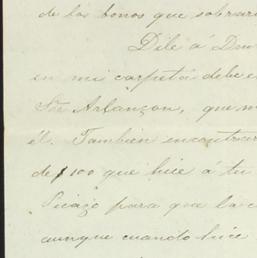 de los bonos que sobrar
Dile á
en mi carpeta debe e
Sr Arlanzon, que m
él. Tambien encontrar
de $100 que hice á tu
Picazo para que la c
aunque cuando hice